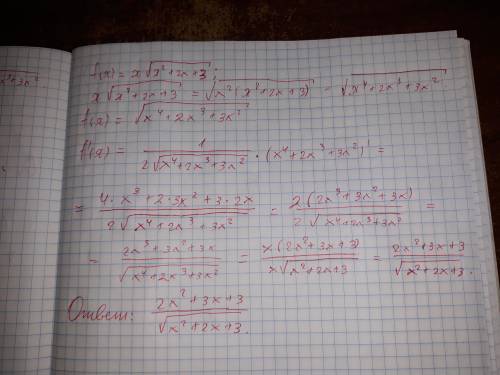 f(x) = x√(x²+2x+3);
x√(x²+2x+3) = √(x²(x²+2x+3)) = √(x⁴+2x³+3x²)
f(x) = √(x⁴+2x³+3x²)
f'(x) = 1/(2√(x⁴+2x³+3x²)) · (x⁴+2x³+3x²)' =
= (4·x³+2·3x²+3·2x)/(2√(x⁴+2x³+3x²)) = 2(2x³+3x²+3x)/(2√(x⁴+2x³+3x²)) =
= (2x³+3x²+3x)/√(x⁴+2x³+3x²) = x(2x²+3x+3)/(x√(x²+2x+3)) = (2x²+3x+3)/√(x²+2x+3).
Ответ: (2x²+3x+3)/√(x²+2x+3).